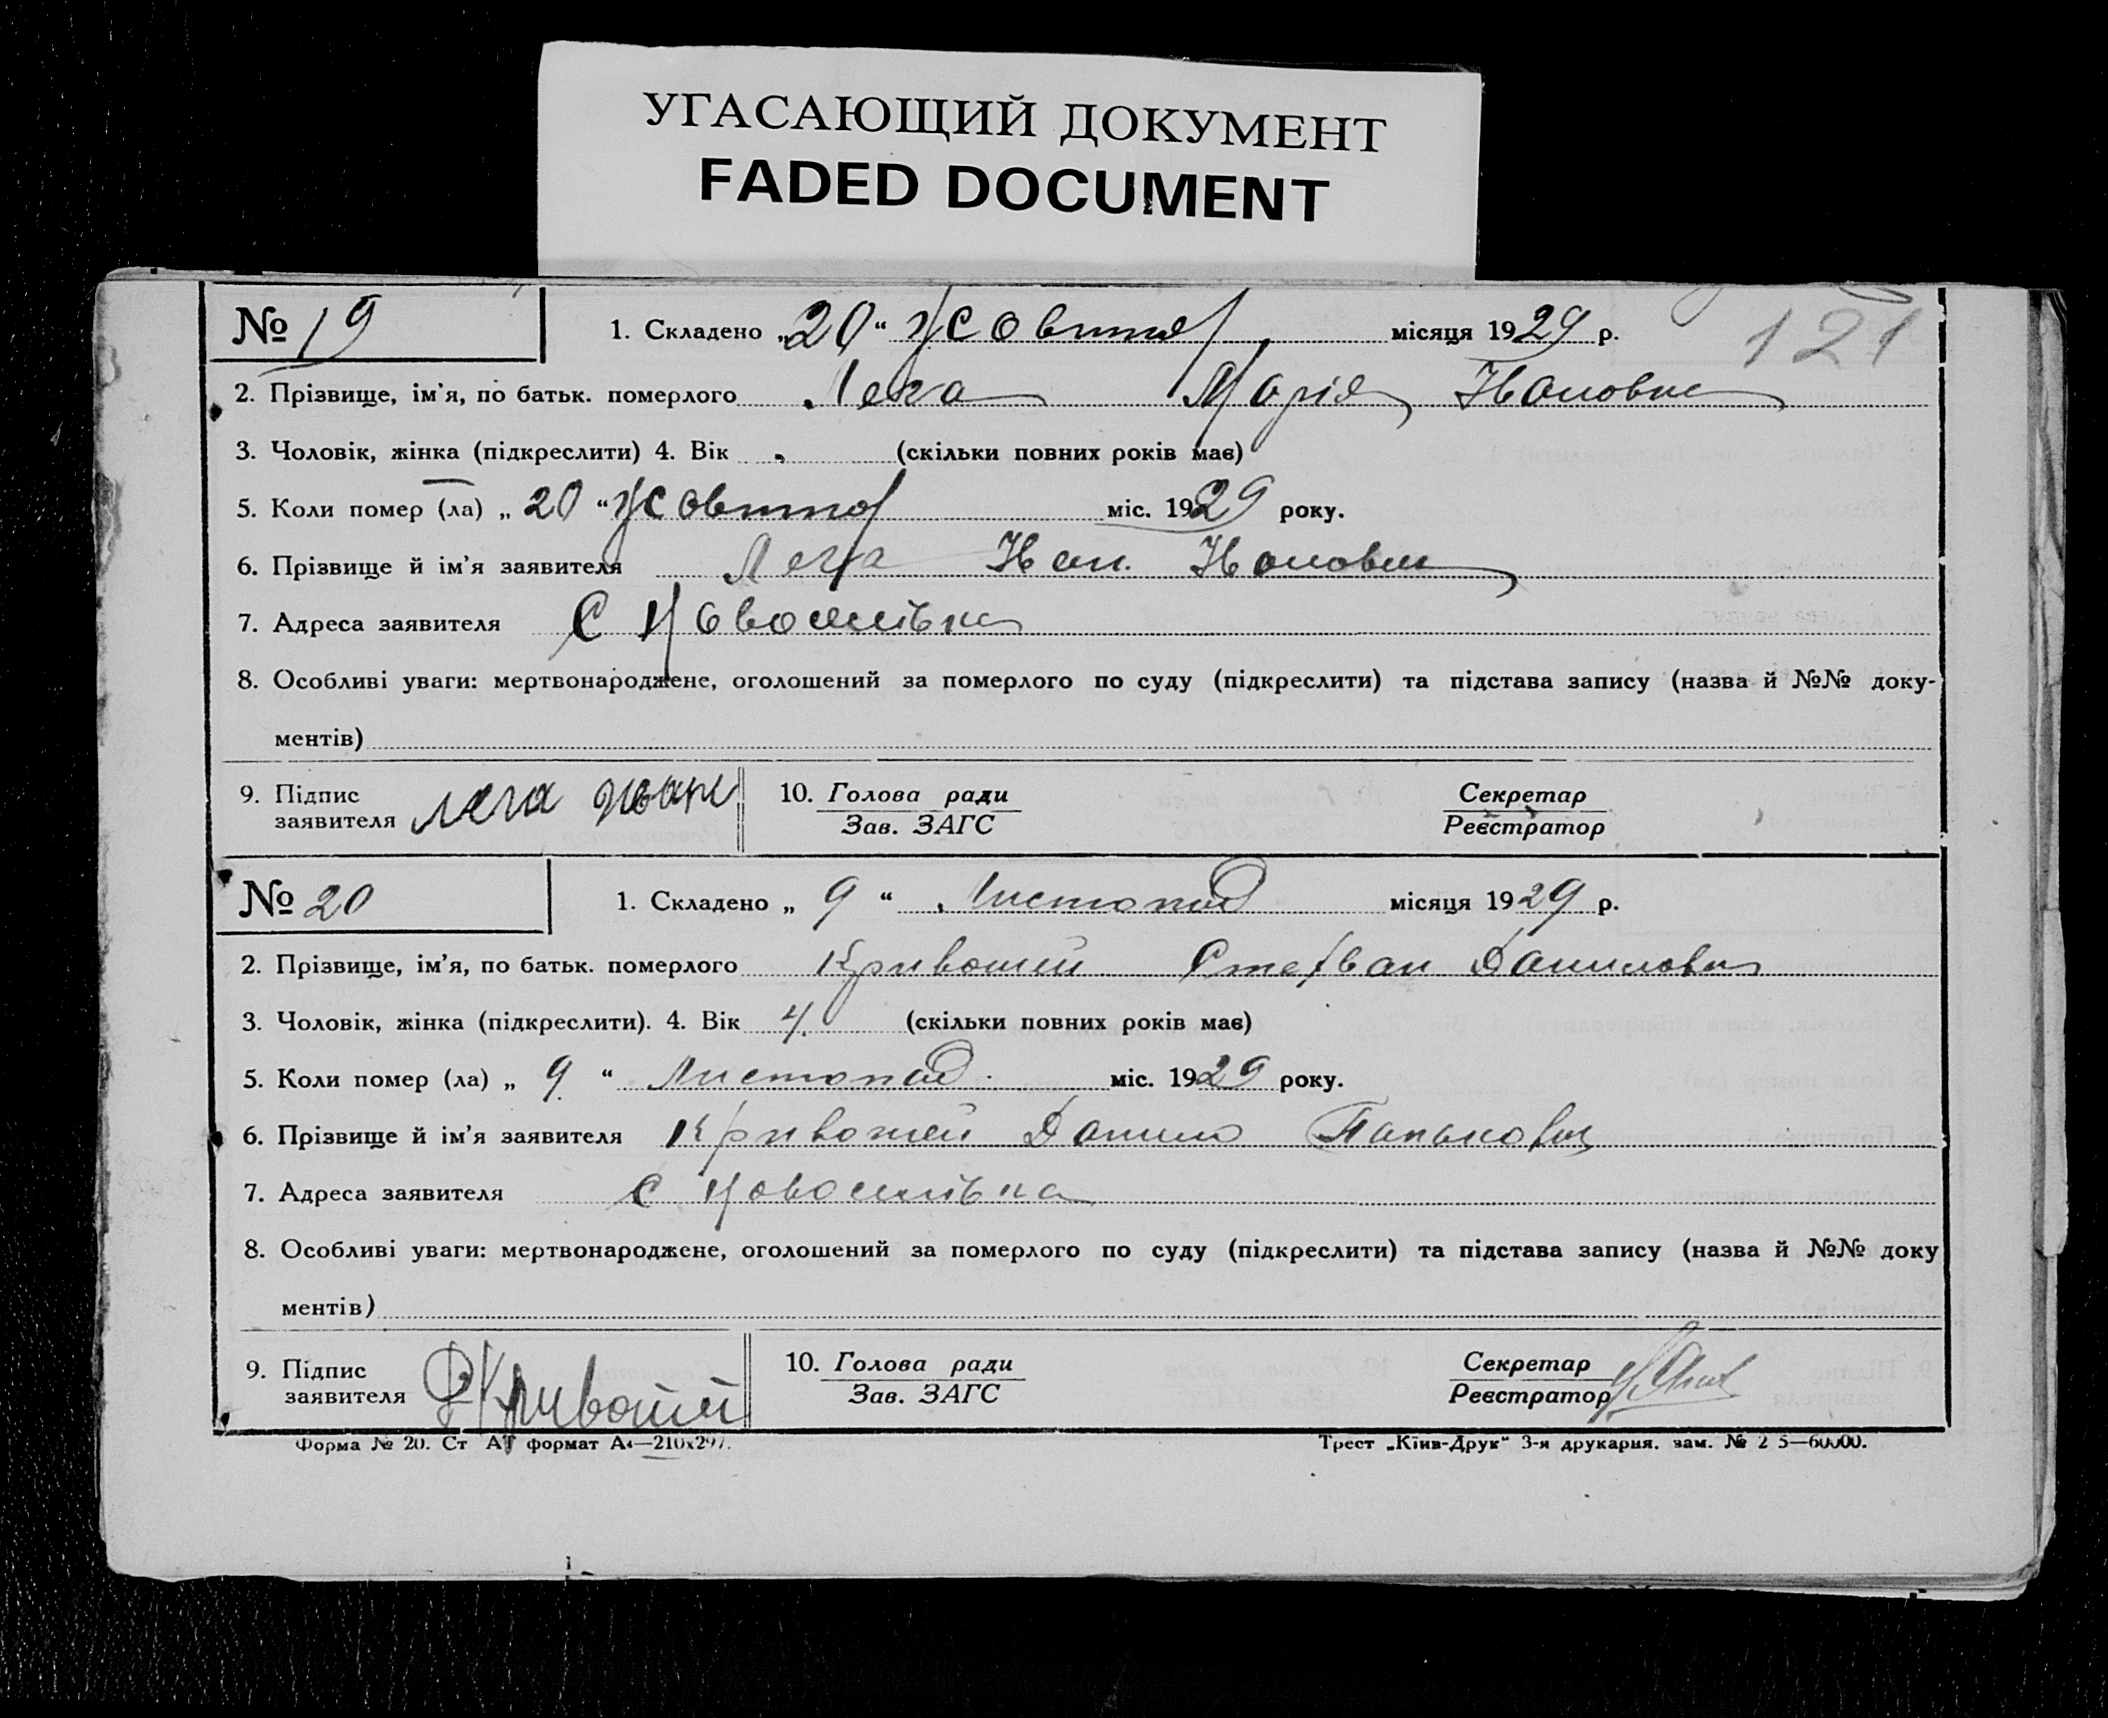 УГАСАЮЩИЙ ДОКУМЕНТ
FADED DOCUMENT
№ 19 1. Складено „20“ жовтня місяця 1929 р. 121
2. Прізвище, ім'я, по батьк. померлого Лега Марія Ивановна
3. Чоловік, жінка (підкреслити) 4. Вік (скільки повних років має)
5. Коли помер (ла) „20“ жовтня міс. 1929 року.
6. Прізвище й ім'я заявителя Лега Иван Иванович
7. Адреса заявителя С
8. Особливі уваги: мертвонароджене, оголошений за померлого по суду (підкреслити) та підстава запису (назва й №№ доку-
ментів)
9. Підпис заявителя лега иван 10. Голова ради Секретар
Зав. ЗАГС Реєстратор
№ 20 1. Складено „9“ Листопад місяця 1929 р.
2. Прізвище, ім'я, по батьк. померлого Кривошей Стефан Данилович
3. Чоловік, жінка (підкреслити). 4. Вік 4. (скільки повних років має)
5. Коли помер (ла) „9“ Листопад міс. 1929 року.
6. Прізвище й ім'я заявителя Кривошей Данило
7. Адреса заявителя С
8. Особливі уваги: мертвонароджене, оголошений за померлого по суду (підкреслити) та підстава запису (назва й №№ доку
ментів)
9. Підпис заявителя Кривошей 10. Голова ради Секретар
Зав. ЗАГС Реєстратор
Форма № 20. Ст АТ формат А4—210х297. Трест „Київ-Друк“ 3-я друкарня. зам. № 2 5—60000.